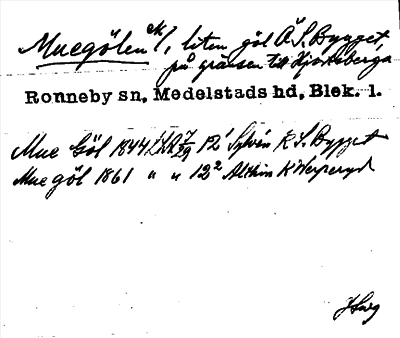 Muegölen ek/, liten göl Ä S. Bygget,
på gränsen till Hjortsberga
Ronneby sn, Medelstads hd, Blek. l.
Mue Göl 1844 12' Sylvén K S. Bygget
Mue göl 1861 " " 12² Althin K